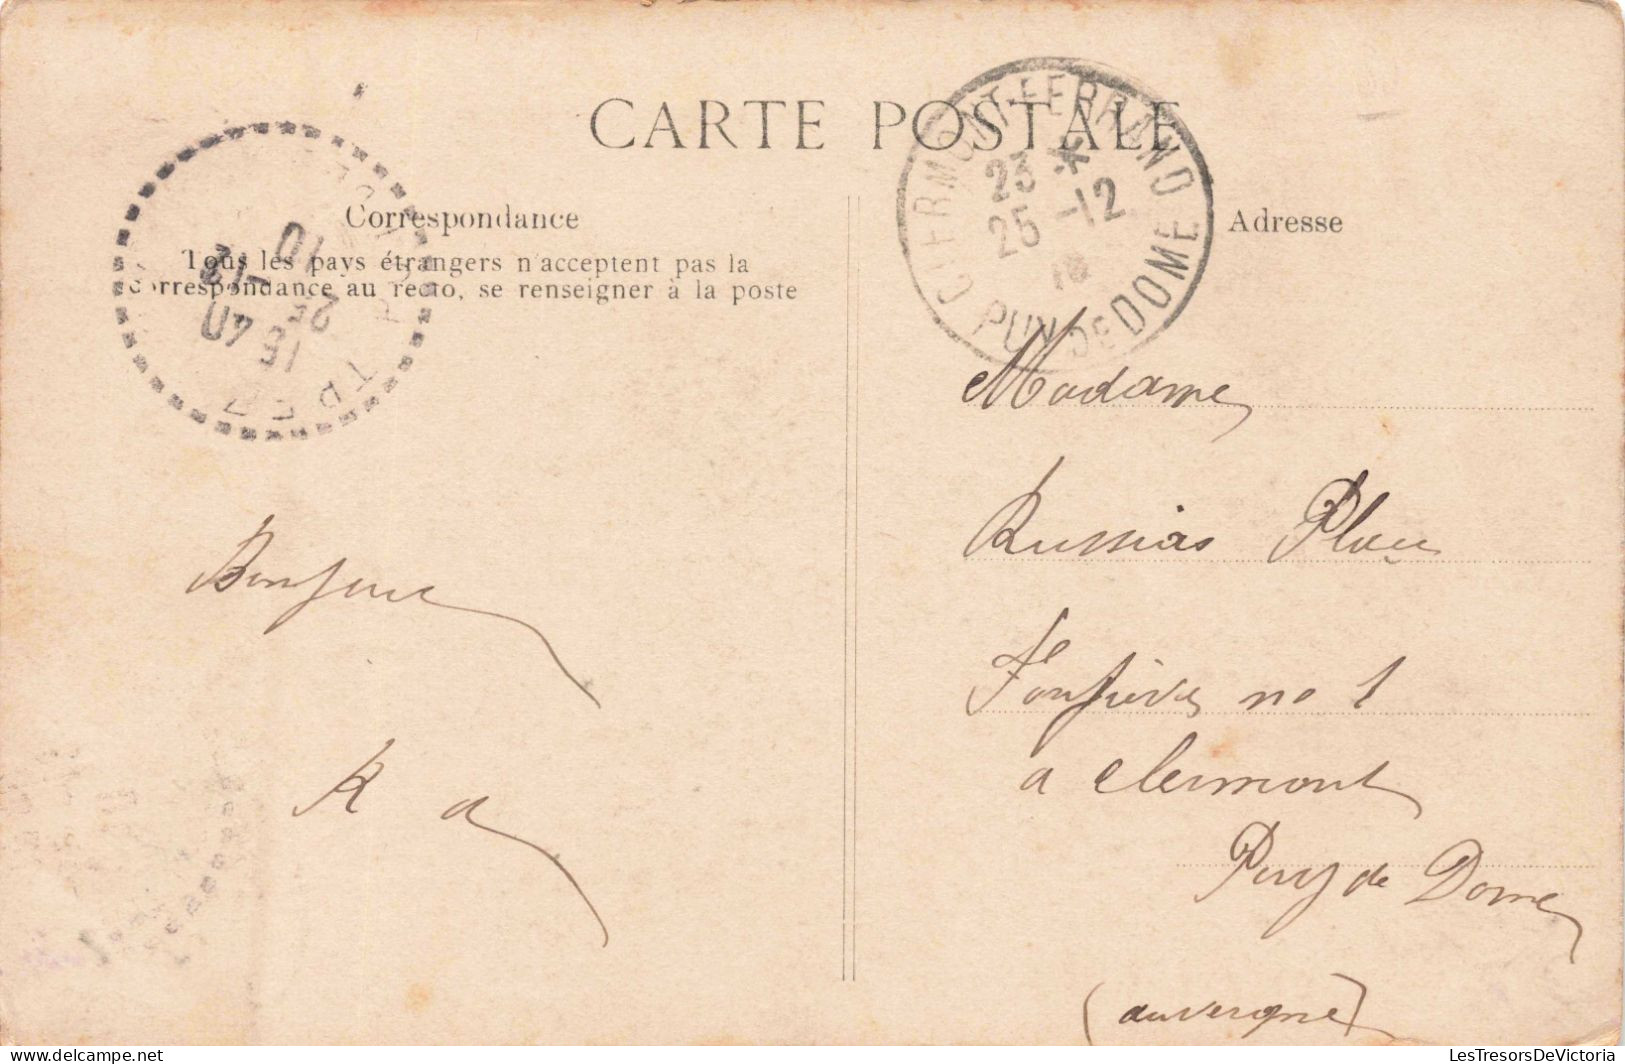 CARTE POSTALE
CLERMONT-FERRAND
23 *
25 -12
10
PUY DE DOME
Correspondance
Tous les pays étrangers n'acceptent pas la
correspondance au recto, se renseigner à la poste
16 40
25
-12
10
Adresse
Madame
Russias Place
no 1
a clermont
Puy de Dome
(auvergne)
Bonjour
R a
LesTresorsDeVictoria